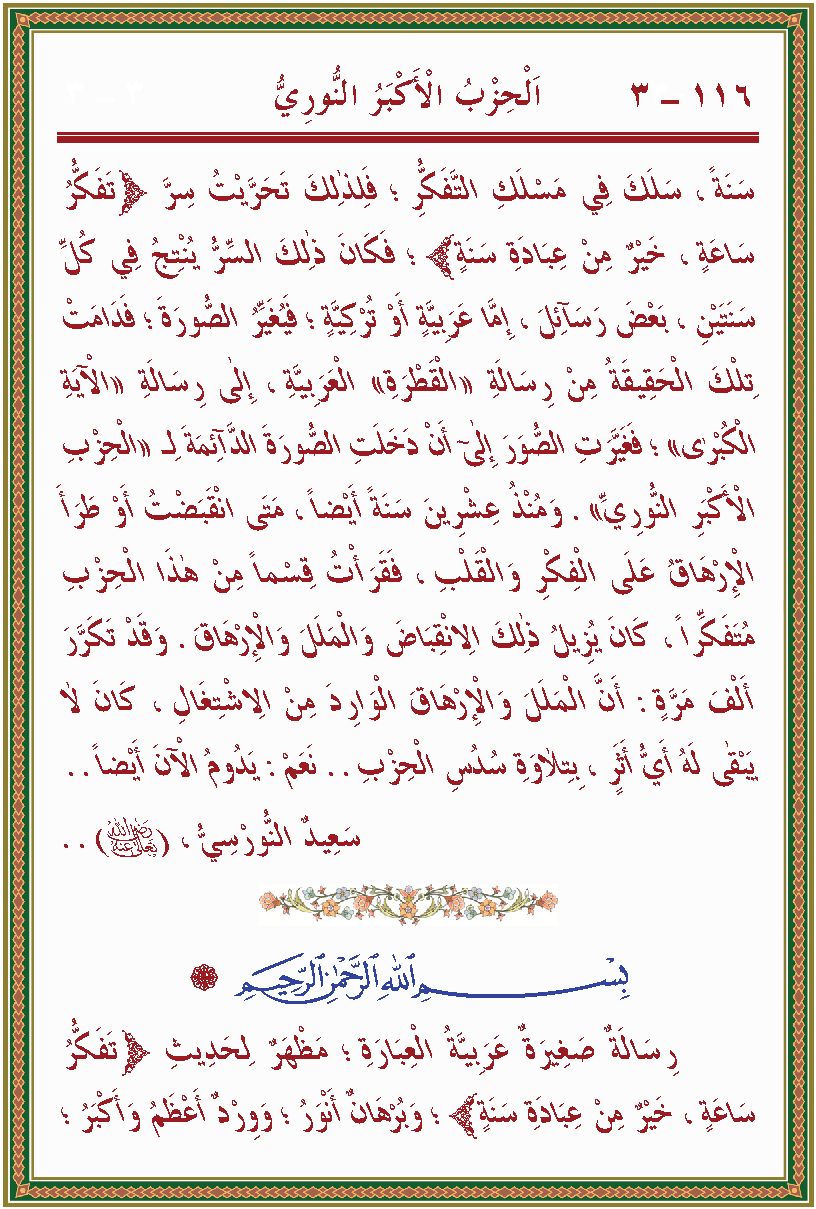 ١١٦ ـ ٣ اَلْحِزْبُ الْأَكْبَرُ النُّورِيُّ ٣ ـ ٣
سَنَةً ، سَلَكَ فِي مَسْلَكِ التَّفَكُّرِ ؛ فَلِذٰلِكَ تَحَرَّيْتُ سِرَّ ﴿تَفَكُّرُ
سَاعَةٍ ، خَيْرٌ مِنْ عِبَادَةِ سَنَةٍ﴾ ؛ فَكَانَ ذٰلِكَ السِّرُّ يُنْتِجُ فِي كُلِّ
سَنَتَيْنِ ، بَعْضَ رَسَآئِلَ ، إِمَّا عَرَبِيَّةٍ أَوْ تُرْكِيَّةٍ ؛ فَيُغَيِّرُ الصُّورَةَ ؛ فَدَامَتْ
تِلْكَ الْحَقِيقَةُ مِنْ رِسَالَةِ «الْقَطْرَةِ» الْعَرَبِيَّةِ ، إِلٰى رِسَالَةِ «الْاٰيَةِ
الْكُبْرٰى» ؛ فَغَيَّرَتِ الصُّوَرَ إِلٰٓى أَنْ دَخَلَتِ الصُّورَةَ الدَّآئِمَةَ لِـ «الْحِزْبِ
الْأَكْبَرِ النُّورِيِّ» . وَمُنْذُ عِشْرِينَ سَنَةً أَيْضاً ، مَتَى انْقَبَضْتُ أَوْ طَرَأَ
الْإِرْهَاقُ عَلَى الْفِكْرِ وَالْقَلْبِ ، فَقَرَأْتُ قِسْماً مِنْ هٰذَا الْحِزْبِ
مُتَفَكِّراً ، كَانَ يُزِيلُ ذٰلِكَ الِانْقِبَاضَ وَالْمَلَلَ وَالْإِرْهَاقَ . وَقَدْ تَكَرَّرَ
أَلْفَ مَرَّةٍ : أَنَّ الْمَلَلَ وَالْإِرْهَاقَ الْوَارِدَ مِنْ الِاشْتِغَالِ ، كَانَ لَا
يَبْقٰى لَهُ أَيُّ أَثَرٍ ، بِتِلَاوَةِ سُدُسِ الْحِزْبِ . . نَعَمْ : يَدُومُ الْاٰنَ أَيْضاً . .
سَعِيدٌ النُّورْسِيُّ ، (رَضِيَ اللّٰهُ تَعَالٰى عَنْهُ) . .
بِسْمِ اللّٰهِ الرَّحْمٰنِ الرَّحِيمِ
رِسَالَةٌ صَغِيرَةٌ عَرَبِيَّةُ الْعِبَارَةِ ؛ مَظْهَرٌ لِحَدِيثِ ﴿تَفَكُّرُ
سَاعَةٍ ، خَيْرٌ مِنْ عِبَادَةِ سَنَةٍ﴾ ؛ وَبُرْهَانٌ أَنْوَرُ ؛ وَوِرْدٌ أَعْظَمُ وَأَكْبَرُ ؛